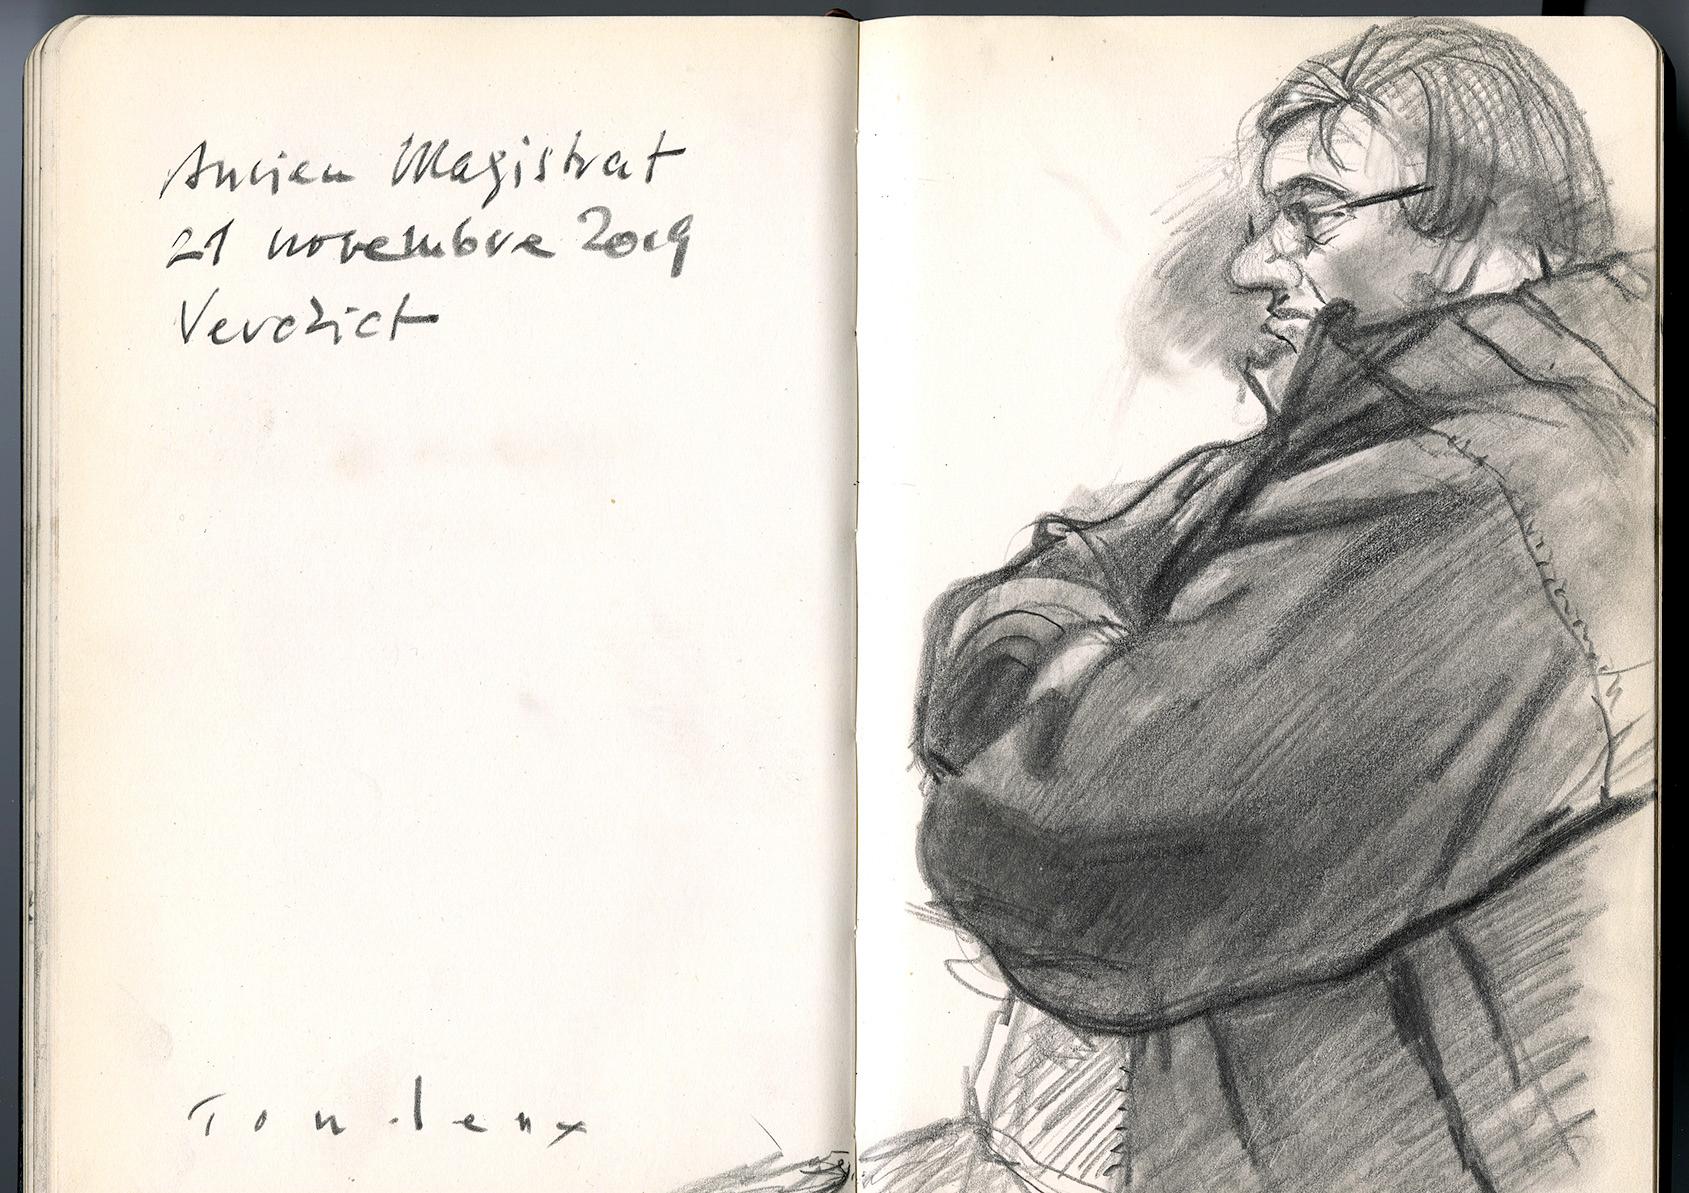 Ancien Magistrat
21 novembre 2019
Verdict